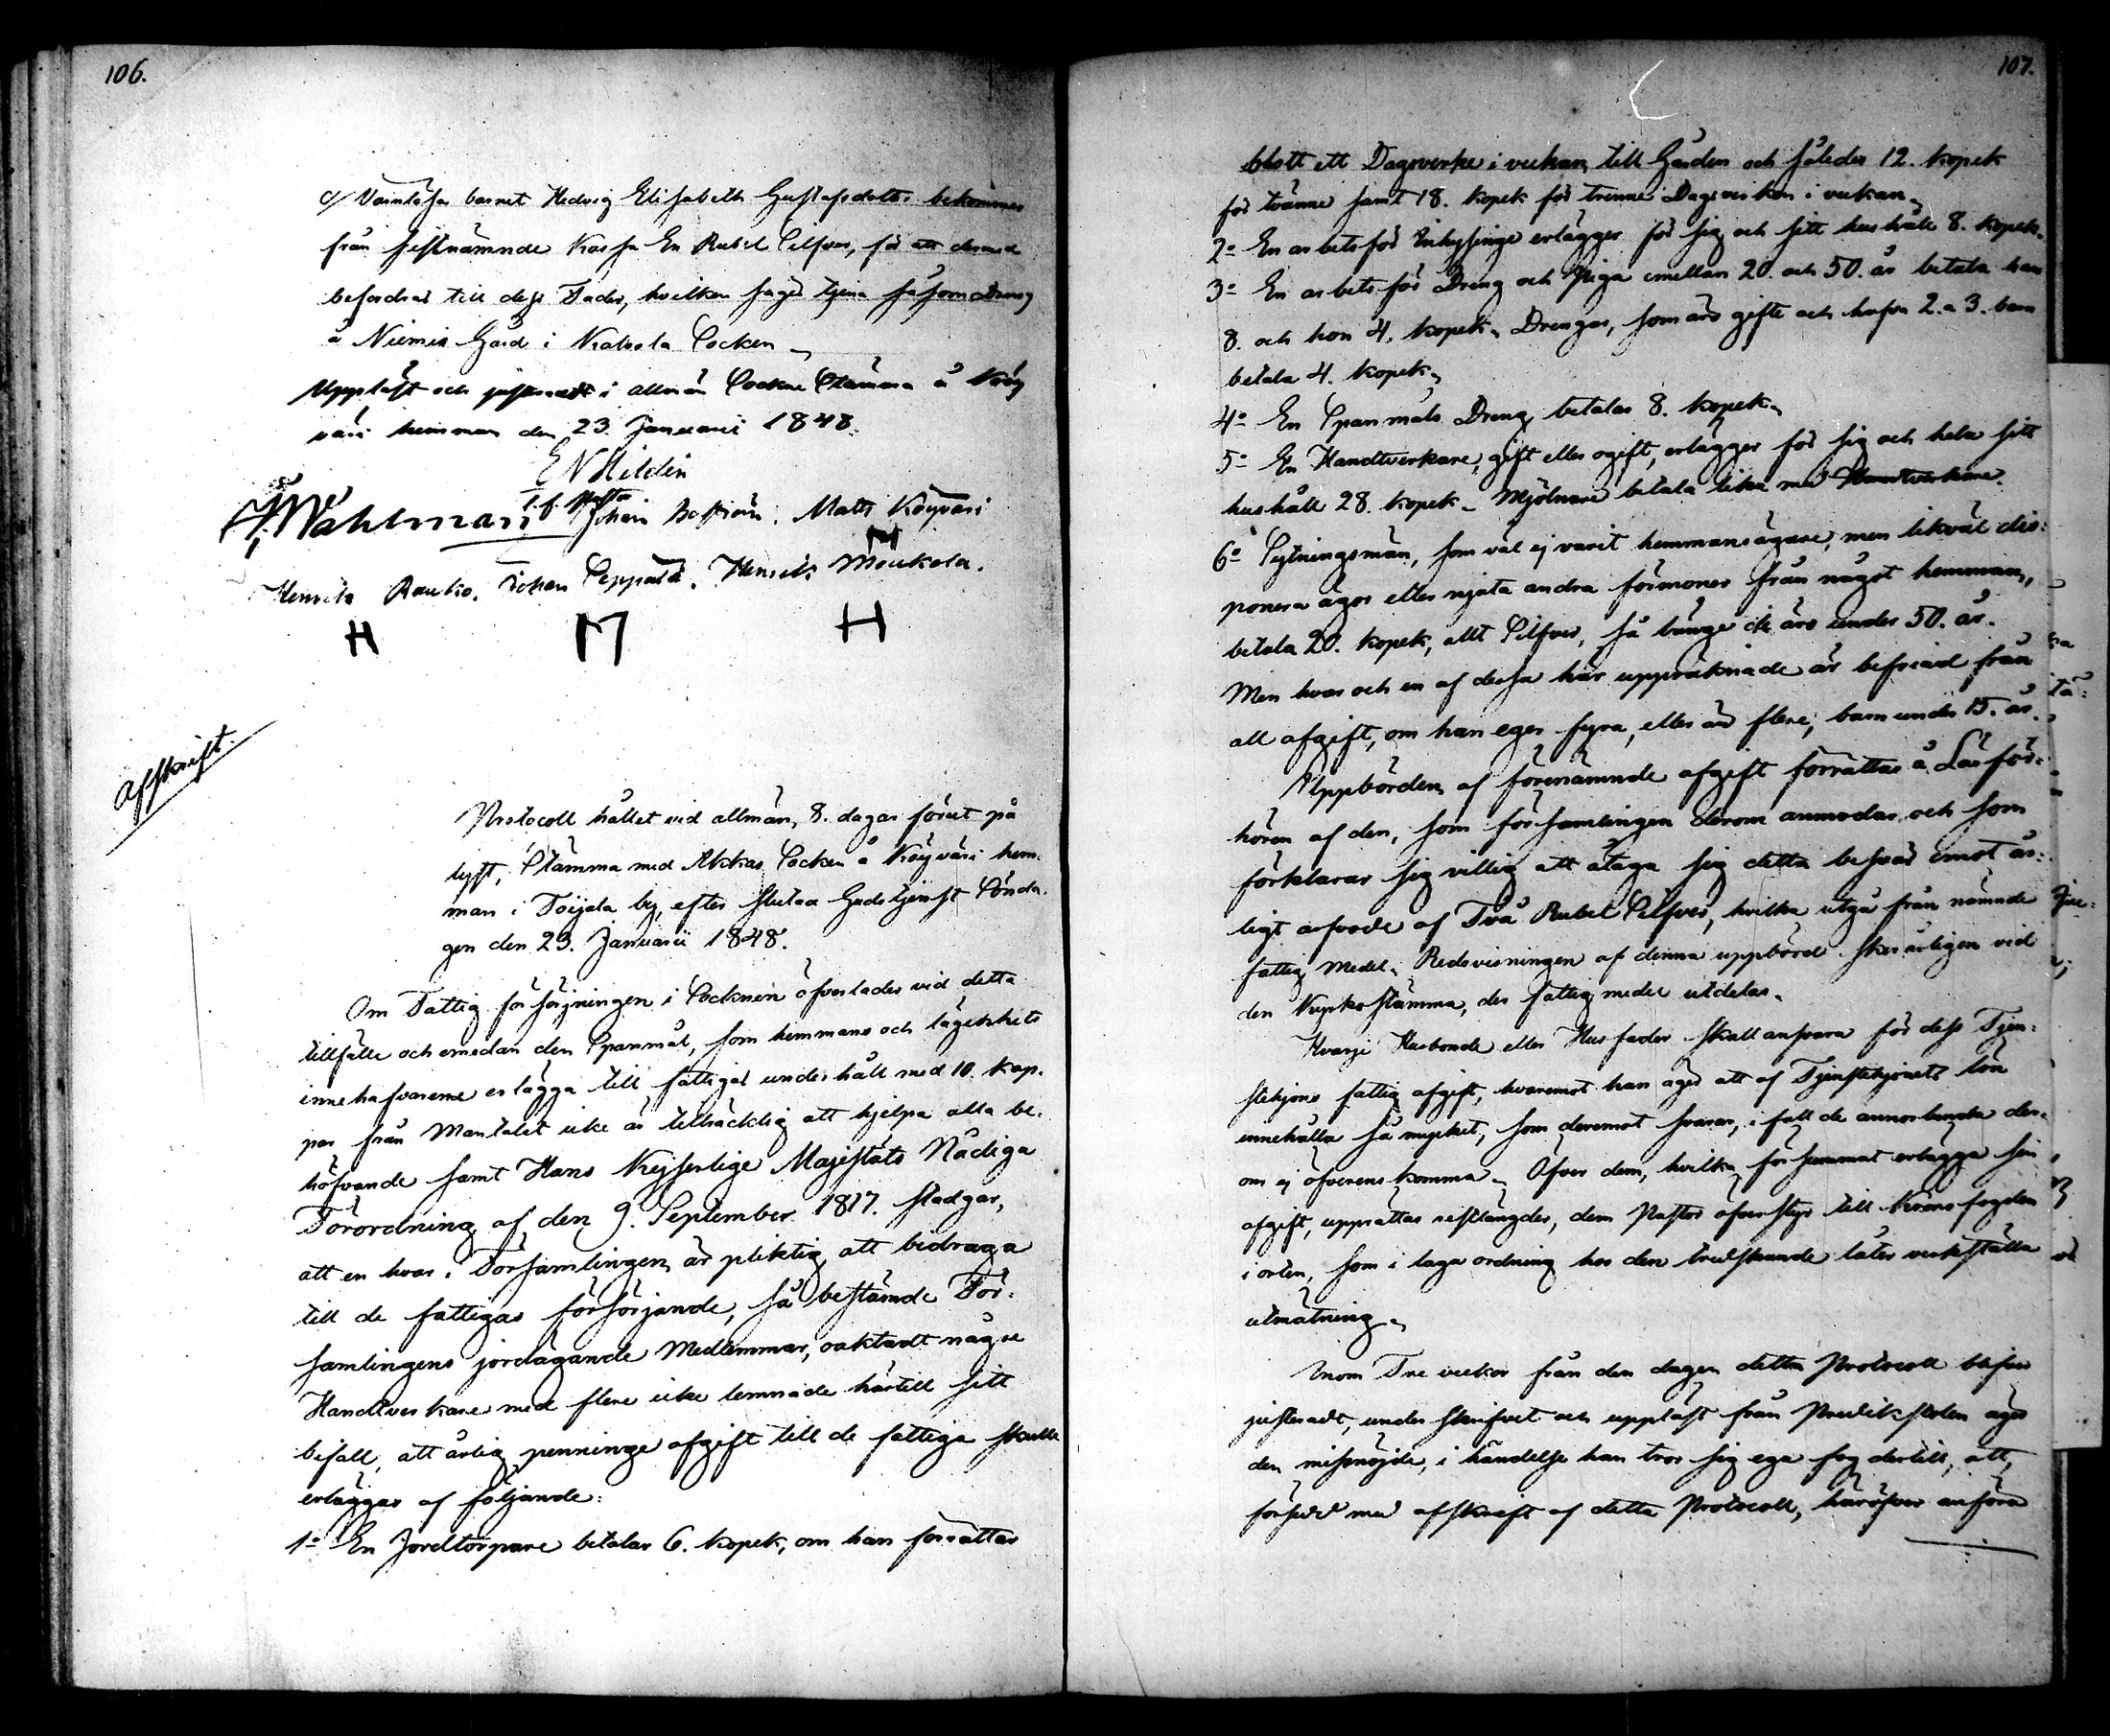 106.
c/ Värnlösa barnet Hedvig Elisabeth Gustafsdotter bekommer
från sistnämnde Kassa En Rubel Silfver, för att dermed
befordras till dess Fader, hvilken säges tjena såsom Dreng
å Niemis Gård i Kalvola Socken
Uppläst och justeradt i allmän Sockne Stämma å Köy
väri hemman den 23. Januarii 1848.
E N Hildén
t. f. Pastor
Wahlman Johan Boström. Matts Köyväri
Henrik Rauko. Johan Seppälä. Henrik Moukola.
H M H
Afskrift.
Protocoll hållet vid allmän, 8. dagar förut på
lyst, Stämma med Akkas Socken å Köyväri hem-
man i Toijala by, efter slutad Gudstjenst Sönda-
gen den 23. Januarii 1848.
Om Fattig försörjningen i Socknen öfverlades vid detta
tillfälle och emedan den Spanmål, som hemmans och lägenhets
innehafvarene erlägga till fattigas underhåll med 10. kap-
par från Mantalet icke är tillräcklig att hjelpa alla be-
höfvande samt Hans Kejserlige Majestäts Nådiga
Förordning af den 9. September 1817. stadgar,
att en hvar i Församlingen är pliktig att bidraga
till de fattigas försörjande, så bestämde För-
samlingens jordägande Medlemmar, oaktadt någre
Handtverkare med flere icke lemnade härtill sitt
bifall, att årlig penninge afgift till de fattiga skulle
erläggas af följande:
1o En Jordtorpare betalar 6. kopek, om han förrättar
107.
blott ett Dagsverke i veckan till Gården och således 12. kopek
för tvänne samt 18. kopek för trenne Dagsverken i veckan,
2o En arbetsför Inhysinge erlägger för sig och sitt hushåll 8. kopek.
3o En arbetsför Dreng och Piga emellan 20. och 50. år betala han
8. och hon 4. kopek. Drengar, som äro gifte och hafva 2. a 3. barn
betala 4. kopek,
4o En Spanmåls Dreng betalar 8. kopek.
5o En Handtverkare, gift eller ogift, erlägger för sig och hela sitt
hushåll 28. kopek. Mjölnare betala lika med Handtverkare.
6o Sytningsmän, som väl ej varit hemmansägare, men likväl dis-
ponera ägor eller njuta andra förmoner från något hemman,
betala 20. kopek, allt Silfver, så länge de äro under 50. år.
Men hvar och en af dessa här uppräknade är befriad från
all afgift, om han eger fyra, eller än flere, barn under 15. år.
Uppbörden af förenämnde afgift förrättas å Läsför-
hören af den, som församlingen derom anmodar och som
förklarar sig villig att åtaga sig detta besvär emot år-
ligt arfvode af Två Rubel Silfver, hvilka utgå från nämnde
fattig Medel. Redovisningen af denna uppbörd sker årligen vid
den Kyrkostämma, der fattig medel utdelas.
Hvarje Husbonde eller Husfader skall ansvara för dess Tjen-
stehjons fattig afgift, hvaremot han äger att af Tjenstehjonets lön
innehålla så mycket, som deremot svarar, i fall de annorlunda der-
om ej öfverenskomma. Öfver dem, hvilka försummat erlägga sin
afgift, upprättas restlängder, dem Pastor öfverstyr till Kronofogden
i orten, som i laga ordning hos den tredskande låter verkställa
utmätning.
Inom Tre veckor från den dagen detta Protocoll blifver
justeradt, underskrifvet och uppläst från Predikstolen äger
den missnöjde, i händelse han tror sig ega fog dertill, att,
försedd med afskrift af detta Protocoll, häröfver anföra